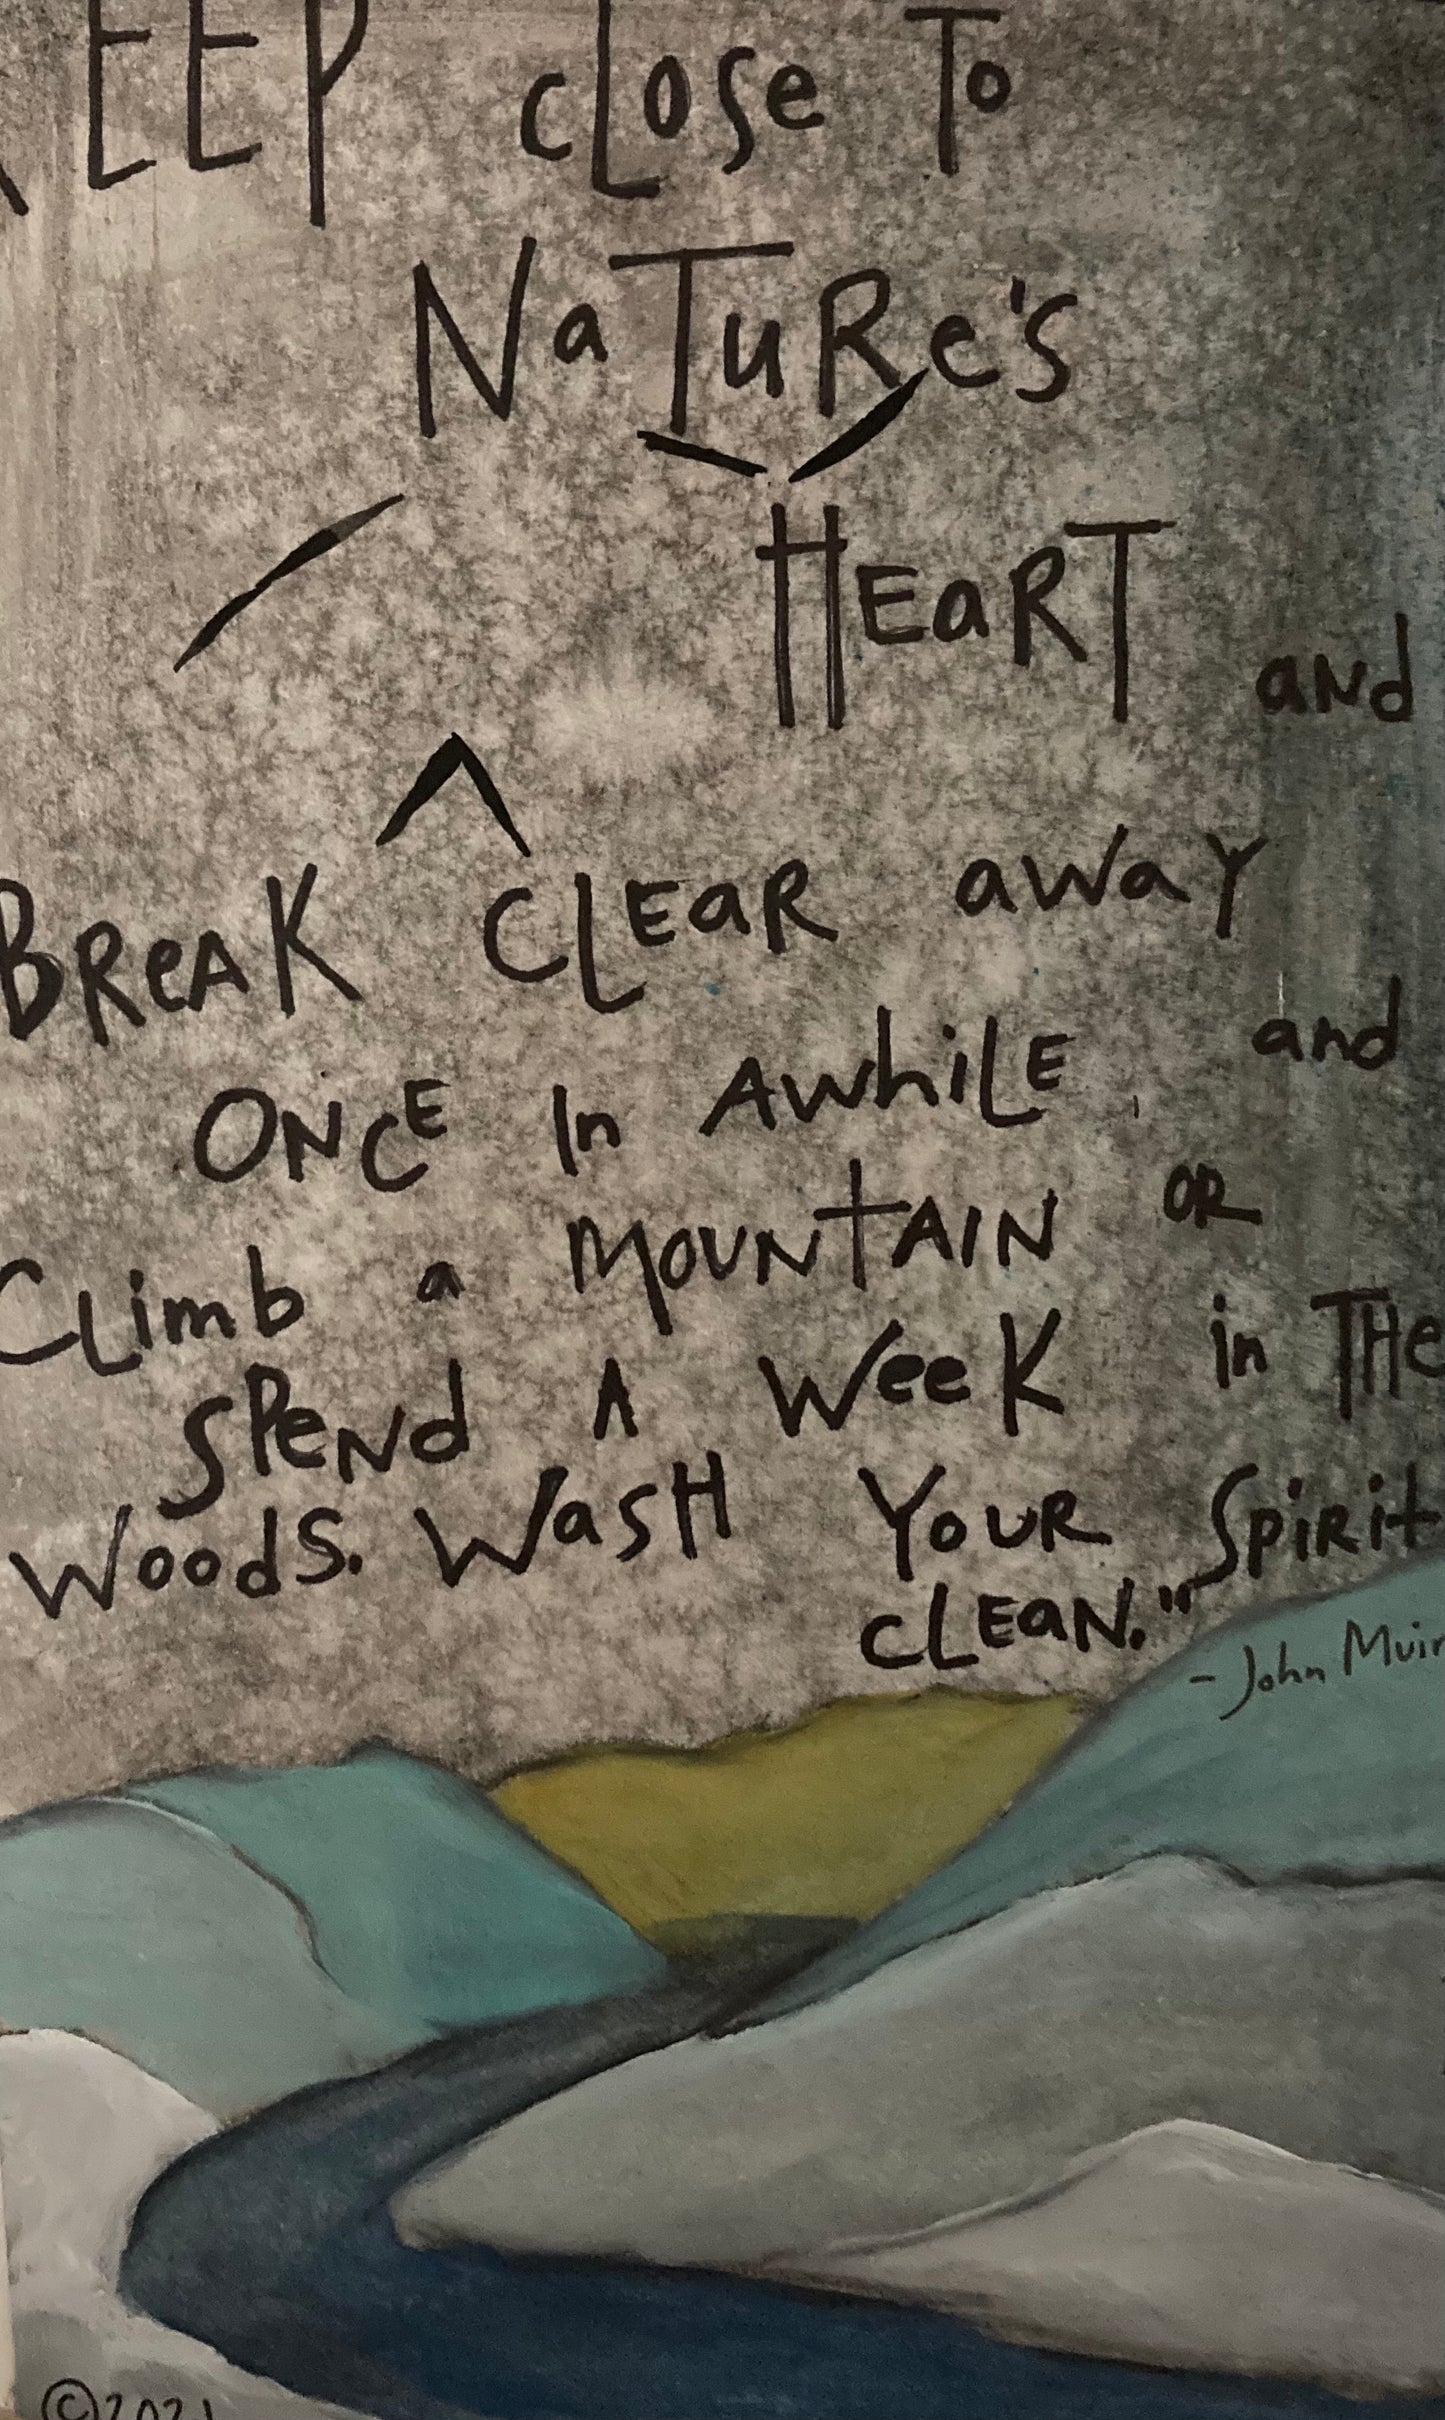 KEEP cLose To
NaTuRe's
HEaRT and
BReAK CLEaR away
ONCE In AwhiLE, and
CLimb a MOUNtAIN OR
SPeNd A WeeK in THe
Woods. WasH YoUR SpiRit
CLEaN."
- John Muir
©2021